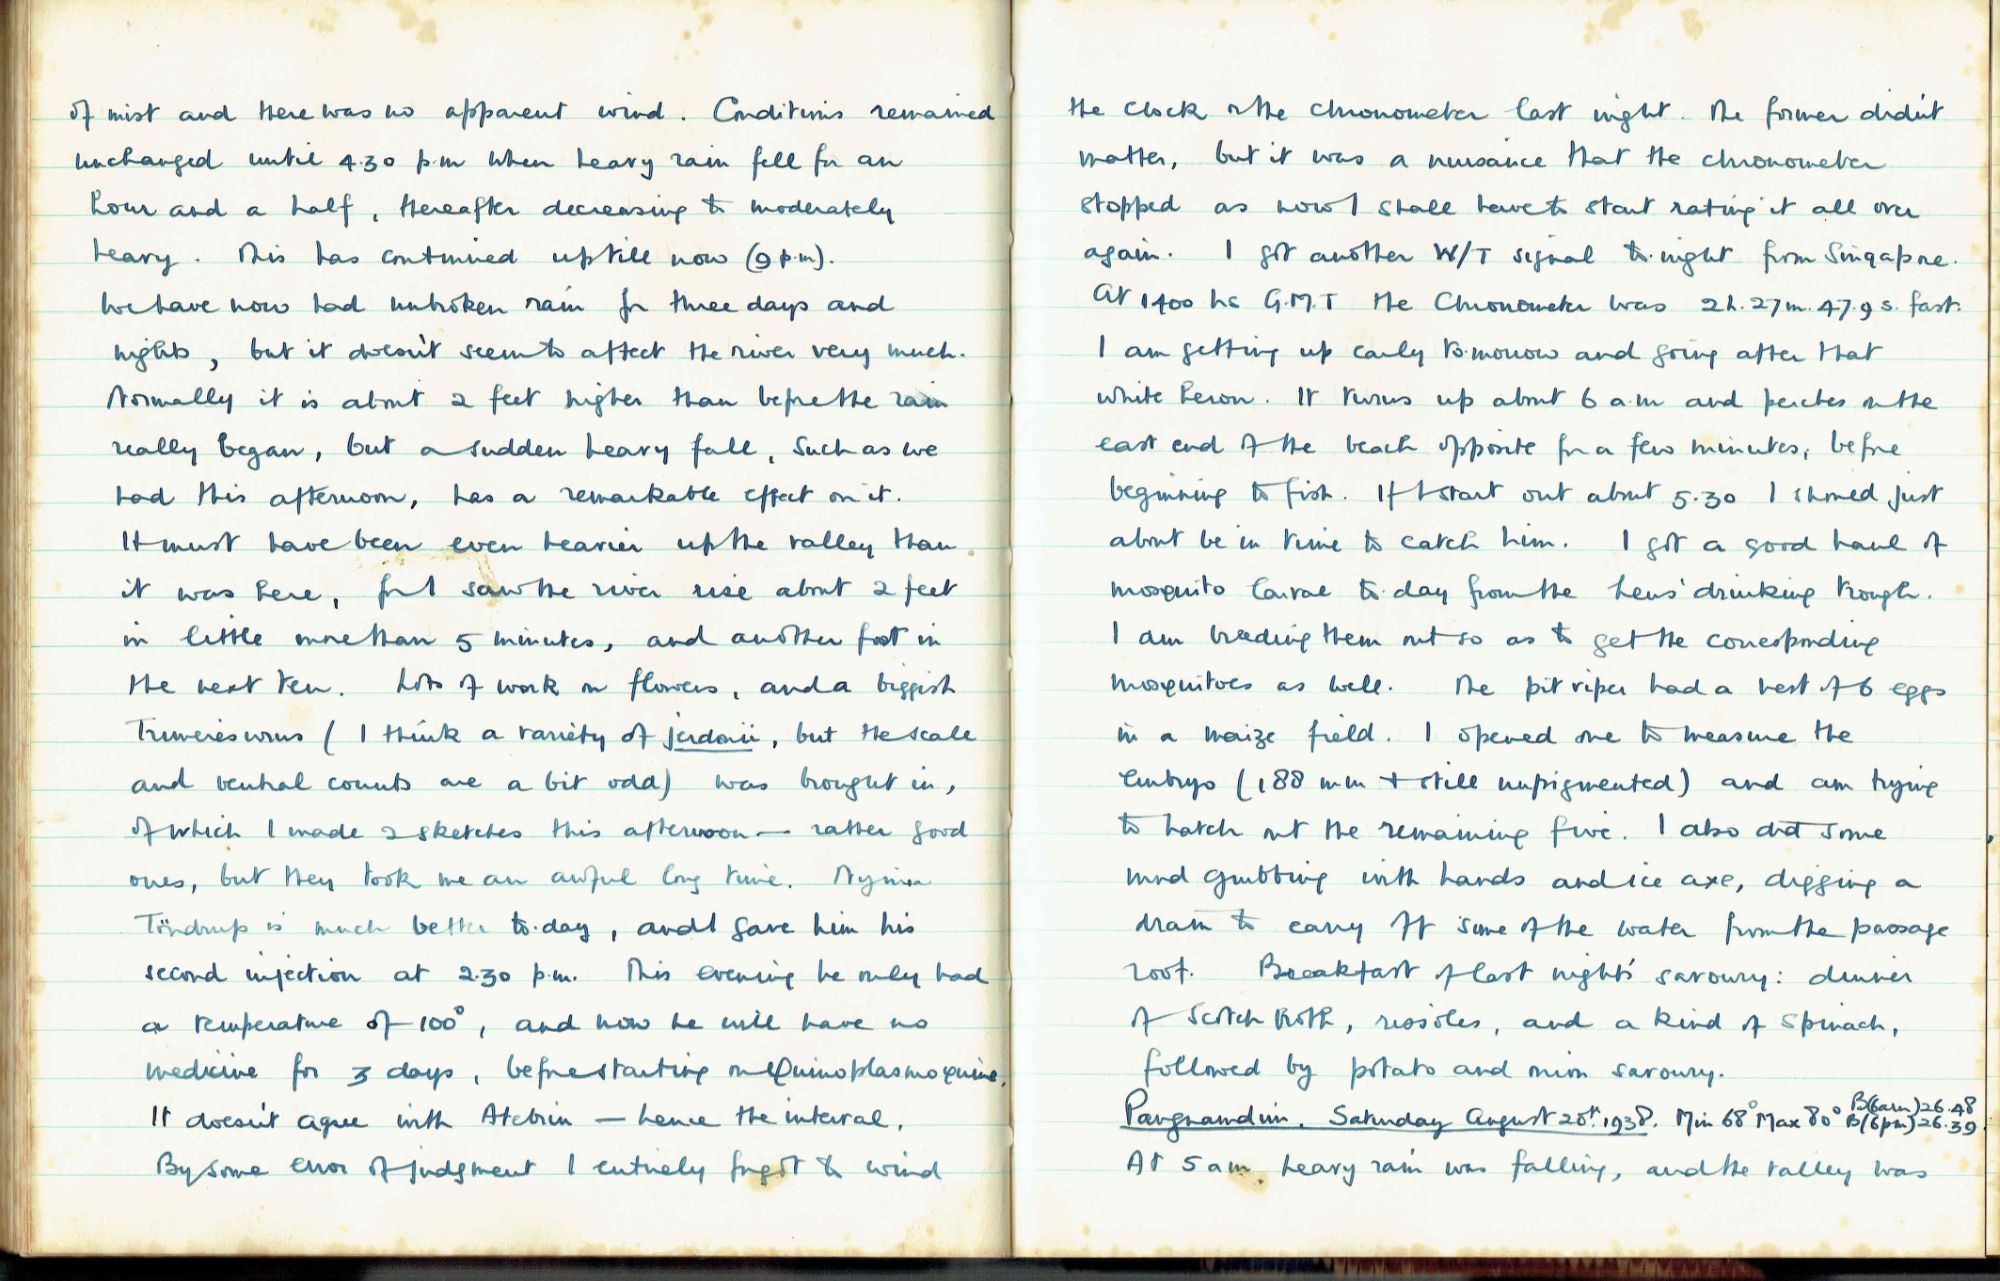 of mist and there was no apparent wind. Conditions remained
unchanged until 4.30 p.m when heavy rain fell for an
hour and a half, thereafter decreasing to moderately
heavy. This has continued up till now (9 p.m).
We have now had unbroken rain for three days and
nights, but it doesn't seem to affect the river very much.
Normally it is about 2 feet higher than before the rain
really began, but a sudden heavy fall, such as we
had this afternoon, has a remarkable effect on it.
It must have been even heavier up the valley than
it was here, for I saw the river rise about 2 feet
in little more than 5 minutes, and another foot in
the next ten. Lots of work on flowers, and a biggish
Trimeresurus (I think a variety of jerdonii, but the scale
and ventral counts are a bit odd) was brought in,
of which I made 2 sketches this afternoon — rather good
ones, but they took me an awful long time. Nyima
Töndrup is much better to-day, and I gave him his
second injection at 2.30 p.m. This evening he only had
a temperature of 100°, and now he will have no
medicine for 3 days, before starting on Quinoplasmoquine.
It doesn't agree with Atebrin — hence the interval.
By some error of judgment I entirely forgot to wind
the clock or the chronometer last night. The former didn't
matter, but it was a nuisance that the chronometer
stopped as now I shall have to start rating it all over
again. I got another W/T signal to-night from Singapore.
At 1400 hs G.M.T the Chronometer was 2h.27m.47.9s. fast.
I am getting up early to-morrow and going after that
white heron. It turns up about 6 a.m and perches on the
east end of the beach opposite for a few minutes, before
beginning to fish. If I start out about 5.30 I should just
about be in time to catch him. I got a good haul of
mosquito larvae to-day from the hens' drinking trough.
I am breeding them out so as to get the corresponding
mosquitoes as well. The pit viper had a nest of 6 eggs
in a maize field. I opened one to measure the
embryo (188 mm + still unpigmented) and am trying
to hatch out the remaining five. I also did some
mud grubbing with hands and ice axe, digging a
drain to carry off some of the water from the passage
roof. Breakfast of last night's savoury: dinner
of Scotch Broth, rissoles, and a kind of spinach,
followed by potato and onion savoury.
Pangnamdim. Saturday August 20th. 1938. Min 68° Max 80° B(6am) 26.48 B(6pm) 26.39
At 5 am heavy rain was falling, and the valley was